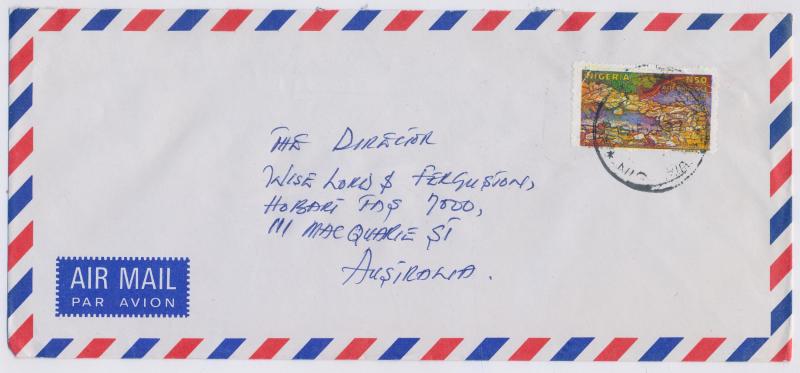 NIGERIA N50
THE DIRECTOR
WISE LORD & FERGUSION,
HOBART TAS 7000,
111 MACQUARIE ST
AUSTRALIA.
AIR MAIL
PAR AVION